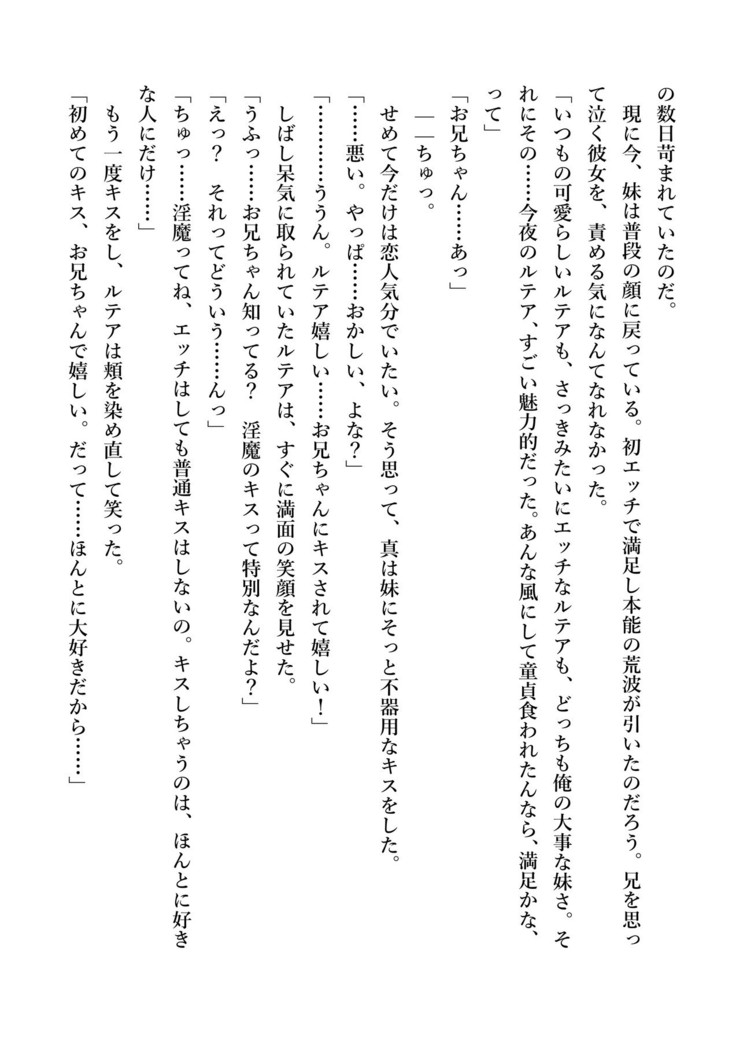 の数日苛まれていたのだ。
　現に今、妹は普段の顔に戻っている。初エッチで満足し本能の荒波が引いたのだろう。兄を思っ
て泣く彼女を、責める気になんてなれなかった。
「いつもの可愛らしいルテアも、さっきみたいにエッチなルテアも、どっちも俺の大事な妹さ。そ
れにその……今夜のルテア、すごい魅力的だった。あんな風にして童貞食われたんなら、満足かな、
って」
「お兄ちゃん……あっ」
　――ちゅっ。
　せめて今だけは恋人気分でいたい。そう思って、真は妹にそっと不器用なキスをした。
「……悪い。やっぱ……おかしい、よな？」
「…………ううん。ルテア嬉しい……お兄ちゃんにキスされて嬉しい！」
　しばし呆気に取られていたルテアは、すぐに満面の笑顔を見せた。
「うふっ……お兄ちゃん知ってる？　淫魔のキスって特別なんだよ？」
「えっ？　それってどういう……んっ」
「ちゅっ……淫魔ってね、エッチはしても普通キスはしないの。キスしちゃうのは、ほんとに好き
な人にだけ……」
　もう一度キスをし、ルテアは頬を染め直して笑った。
「初めてのキス、お兄ちゃんで嬉しい。だって……ほんとに大好きだから……」